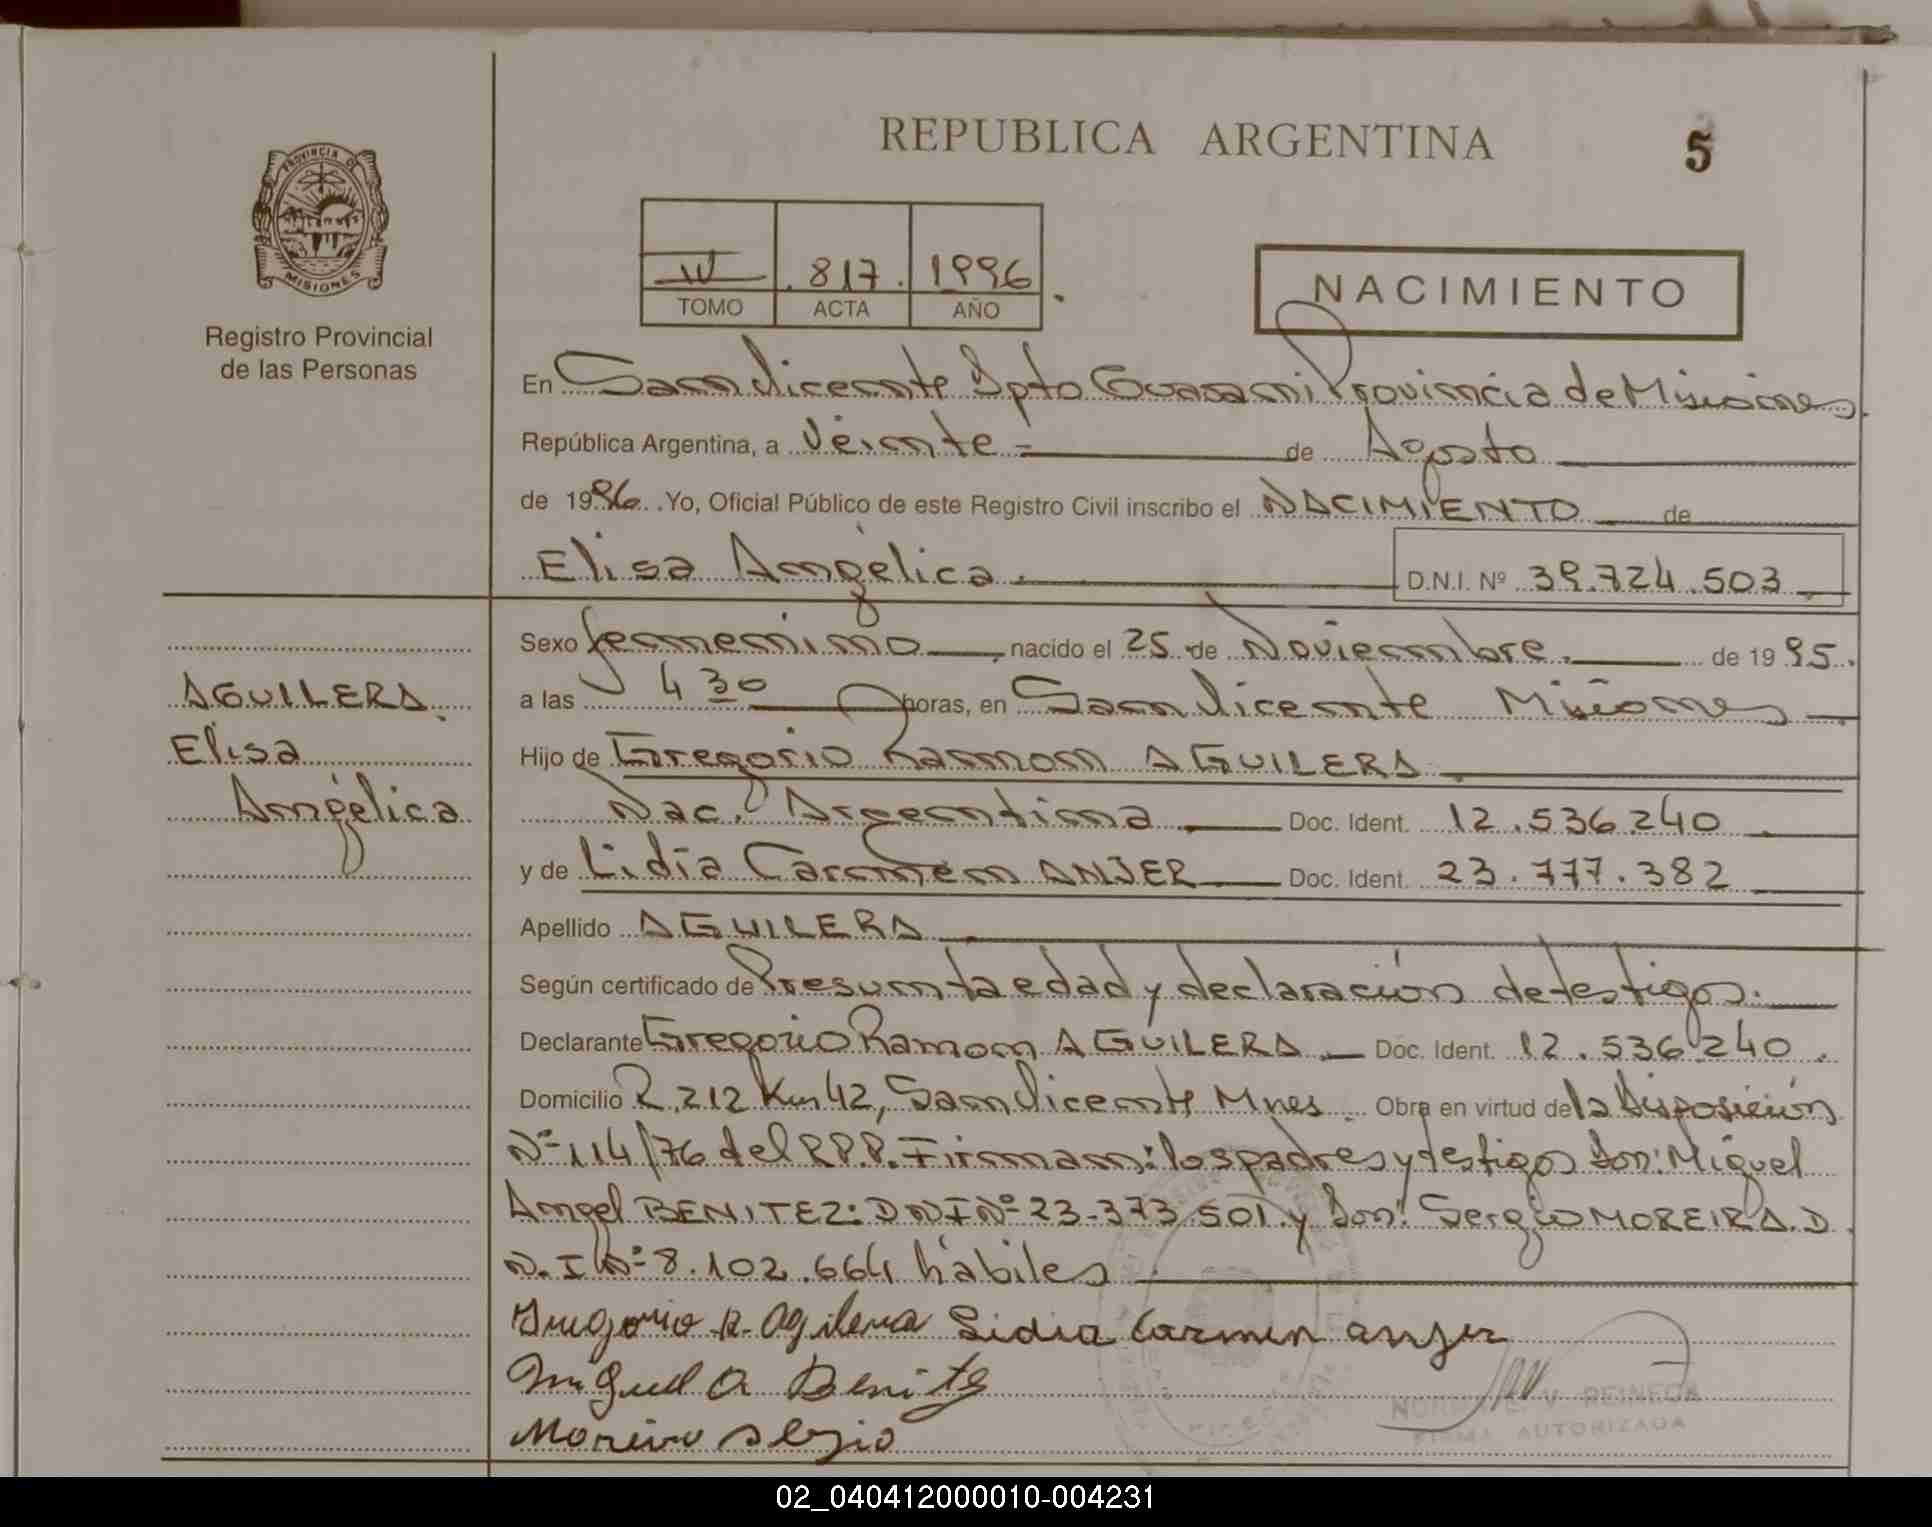 REPUBLICA ARGENTINA
5
PROVINCIA D
MISIONES
Registro Provincial
de las Personas
IV 817. 1996.
TOMO ACTA AÑO
NACIMIENTO
En San Vicente Dpto Guarani Provincia de Misiones.
República Argentina, a Veinte de Agosto
de 1996. Yo, Oficial Público de este Registro Civil inscribo el NACIMIENTO de
Elisa Angélica. D.N.I. Nº 39.724.503
AGUILERA.
Elisa
Angélica
Sexo femenino, nacido el 25 de Noviembre. de 1995.
a las 4 30 horas, en San Vicente Misiones
Hijo de Gregorio Ramon AGUILERA.
Nac. Argentina Doc. Ident. 12.536.240
y de Lidia Carmen ANJER Doc. Ident. 23.777.382
Apellido AGUILERA
Según certificado de Presunta edad y declaración de testigos.
Declarante Gregorio Ramon AGUILERA Doc. Ident. 12.536.240.
Domicilio R.212 Km 42, San Vicente Mnes. Obra en virtud de la Disposición
Nº 114/76 del R.P.P. Firman: los padres y testigos Don: Miguel
Angel BENITEZ: DNI Nº 23.373.501. y Don: Sergio MOREIRA. D.
N.I Nº 8.102.664 hábiles
Gregorio R. Agilera Lidia Carmen anjer
Miguel A Benitez
Moreira Sergio
FIRMA AUTORIZADA
02_040412000010-004231